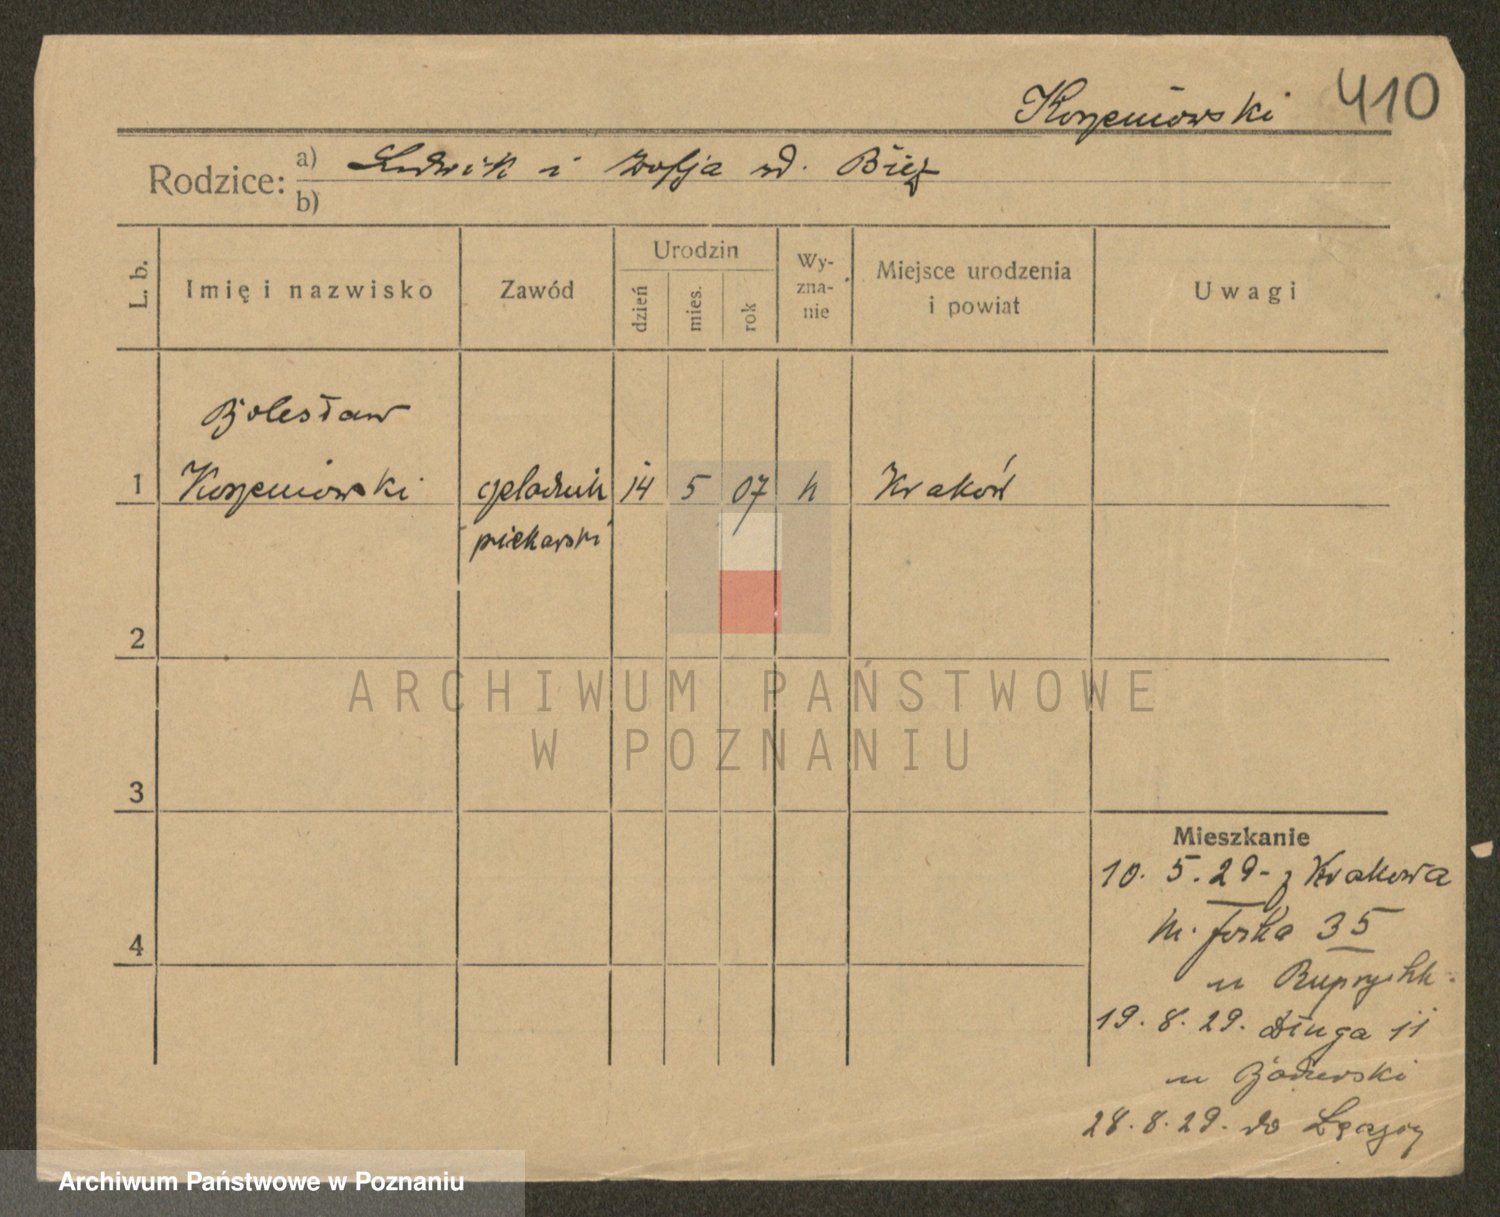 Korzeniowski 410
Rodzice: a) Ludwik i Zofja zd. Bięż
b)
L. b. Imię i nazwisko Zawód Urodzin dzień mies. rok Wy-zna-nie Miejsce urodzenia i powiat Uwagi
Bolesław
1 Korzeniowski czeladnik 14 5 07 k Kraków
piekarski
2
ARCHIWUM PAŃSTWOWE
W POZNANIU
3
Mieszkanie
10. 5. 29 - z Krakowa
35
4
u
19. 8. 29. Długa 11
u
28. 8. 29. do
Archiwum Państwowe w Poznaniu